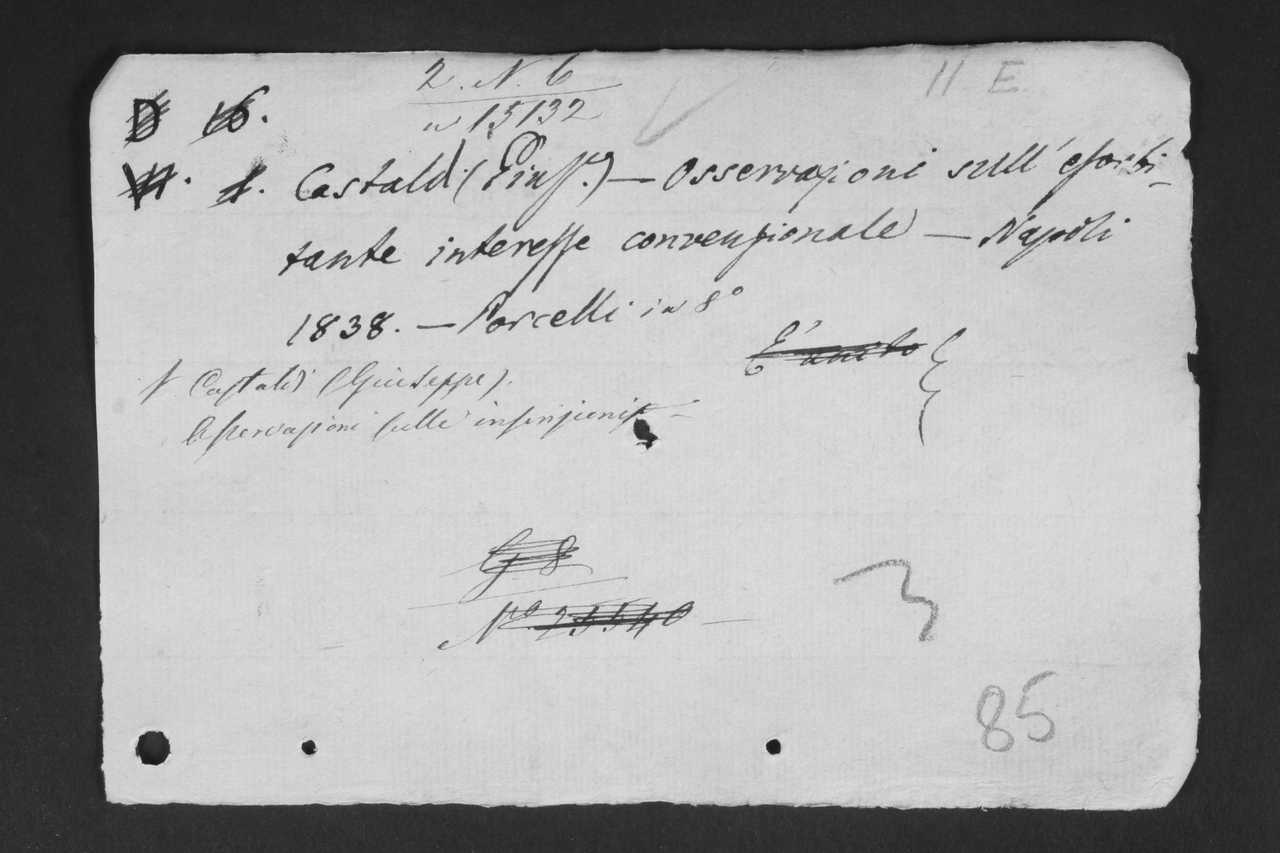 2. N. 6
n 15132
11 E.
D 16.
VI. 1. Castaldi (Giusᵉ.) — Osservazioni sull'esorbi-
tante interesse convenzionale — Napoli
1838. — Porcelli in 8º
E' unito
Castaldi (Giuseppe).
Osservazioni sulle
G 8
Nº 25540
3
85